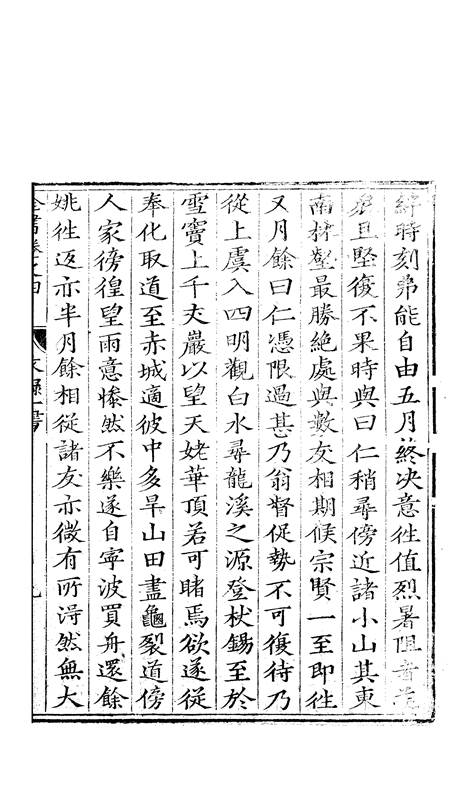 緯時刻弗能自由五月終決意徃值烈暑阻者
衆且堅復不果時與曰仁稍尋傍近諸小山其東
南林壑最勝絶處與數友相期候宗賢一至即徃
又月餘曰仁憑限過甚乃翁督促勢不可復待乃
從上虞入四明觀白水尋龍溪之源登杖錫至於
雪竇上千丈巖以望天姥華頂若可睹焉欲遂從
奉化取道至赤城適彼中多旱山田盡龜裂道傍
人家徬徨望雨意慘然不樂遂自寧波買舟還餘
姚徃返亦半月餘相從諸友亦微有所得然無大
全書卷之四
文錄一書
九